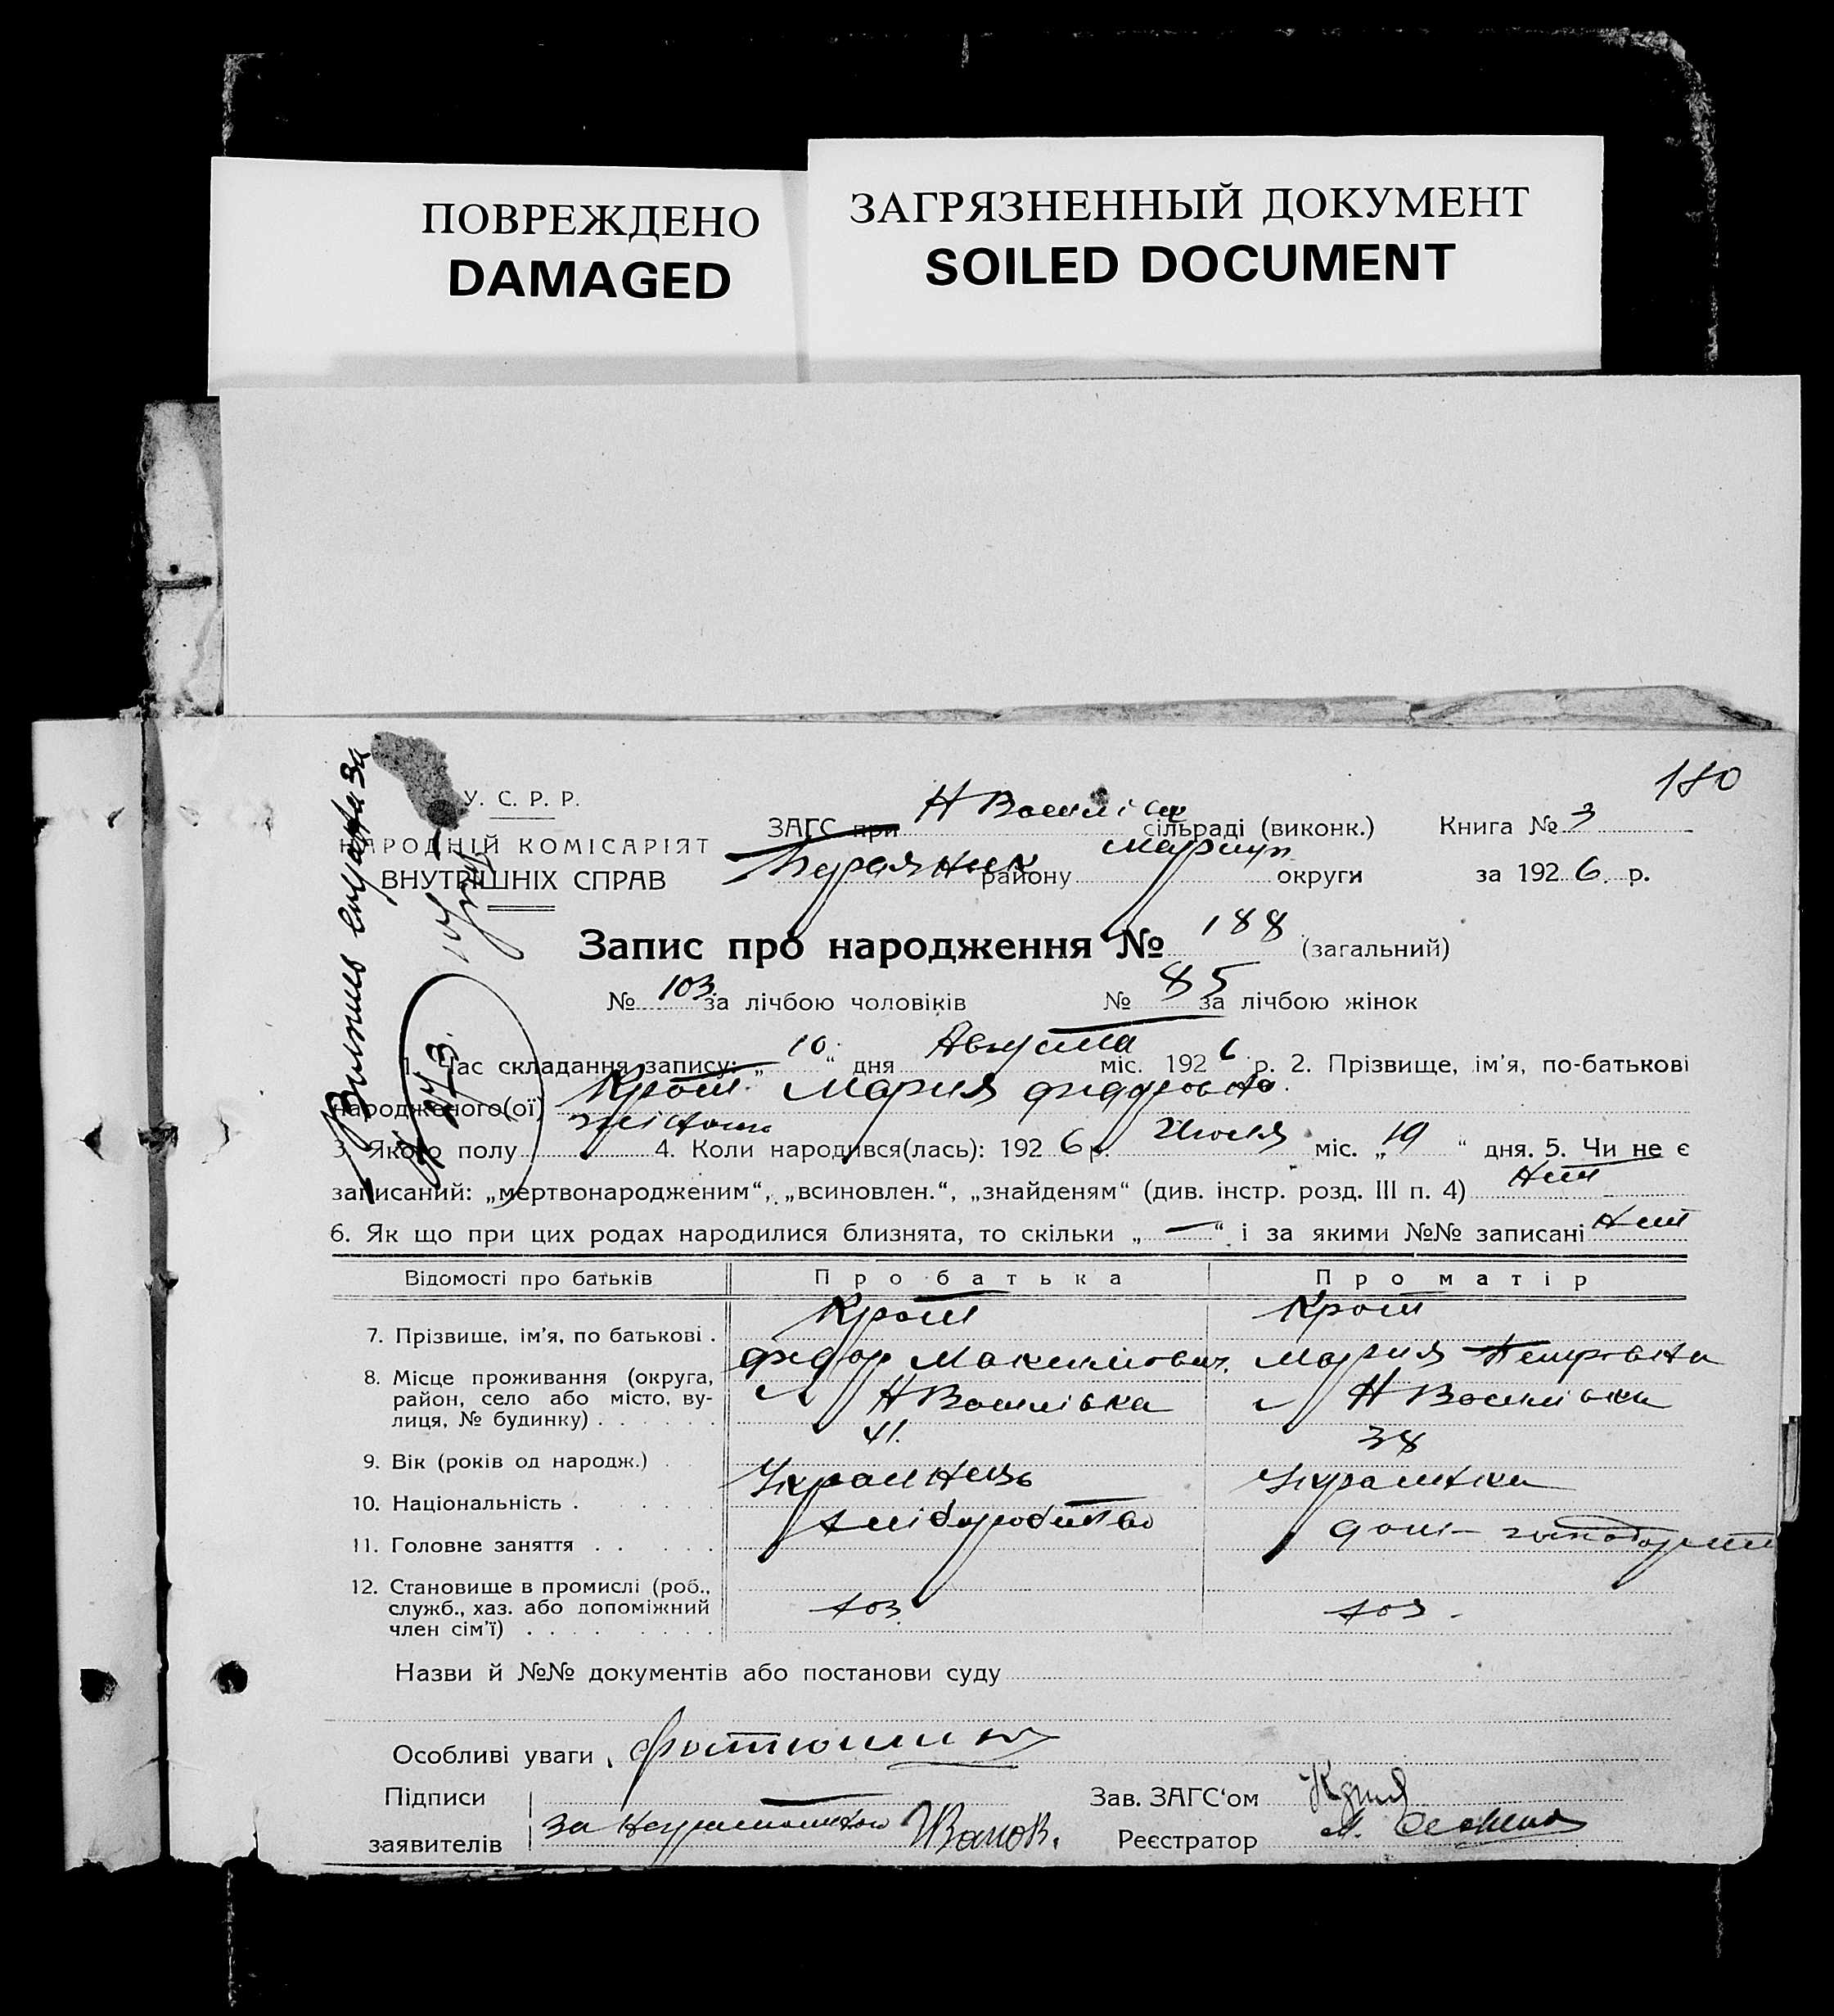 ПОВРЕЖДЕНО
DAMAGED
ЗАГРЯЗНЕННЫЙ ДОКУМЕНТ
SOILED DOCUMENT
180
У. С. Р. Р.
НАРОДНІЙ КОМІСАРІЯТ
ВНУТРІШНІХ СПРАВ
ЗАГС при сільраді (виконк.) Книга № 3
району Мариуп округи за 1926 р.
Запис про народження № 188 (загальний)
№ 103 за лічбою чоловіків № 85 за лічбою жінок
1. Час складання запису: „10“ дня Августа міс. 1926 р. 2. Прізвище, ім'я, по-батькові
народженого(ої) Крот Мария
3. Якого полу 4. Коли народився(лась): 1926 р. Июля міс. „19“ дня. 5. Чи не є
записаний: „мертвонародженим“, „всиновлен.“, „знайденям“ (див. інстр. розд. III п. 4) Нет
6. Як що при цих родах народилися близнята, то скільки „—“ і за якими №№ записані Нет
Відомості про батьків Про батька Про матір
7. Прізвище, ім'я, по батькові . Крот Крот
Федор Максимович Мария Петровна
8. Місце проживання (округа,
район, село або місто, ву-
лиця, № будинку) . . . . . . Н Василівка Н Василівка
9. Вік (років од народж.) . . 41. 38
10. Національність . . . . . . Українець Українка
11. Головне заняття . . . . . хліборобство дом-
12. Становище в промислі (роб.,
служб., хаз. або допоміжний
член сім'ї) . . . . . . . . хоз. хоз.
Назви й №№ документів або постанови суду
Особливі уваги
Підписи Зав. ЗАГС‘ом
заявителів за Реєстратор